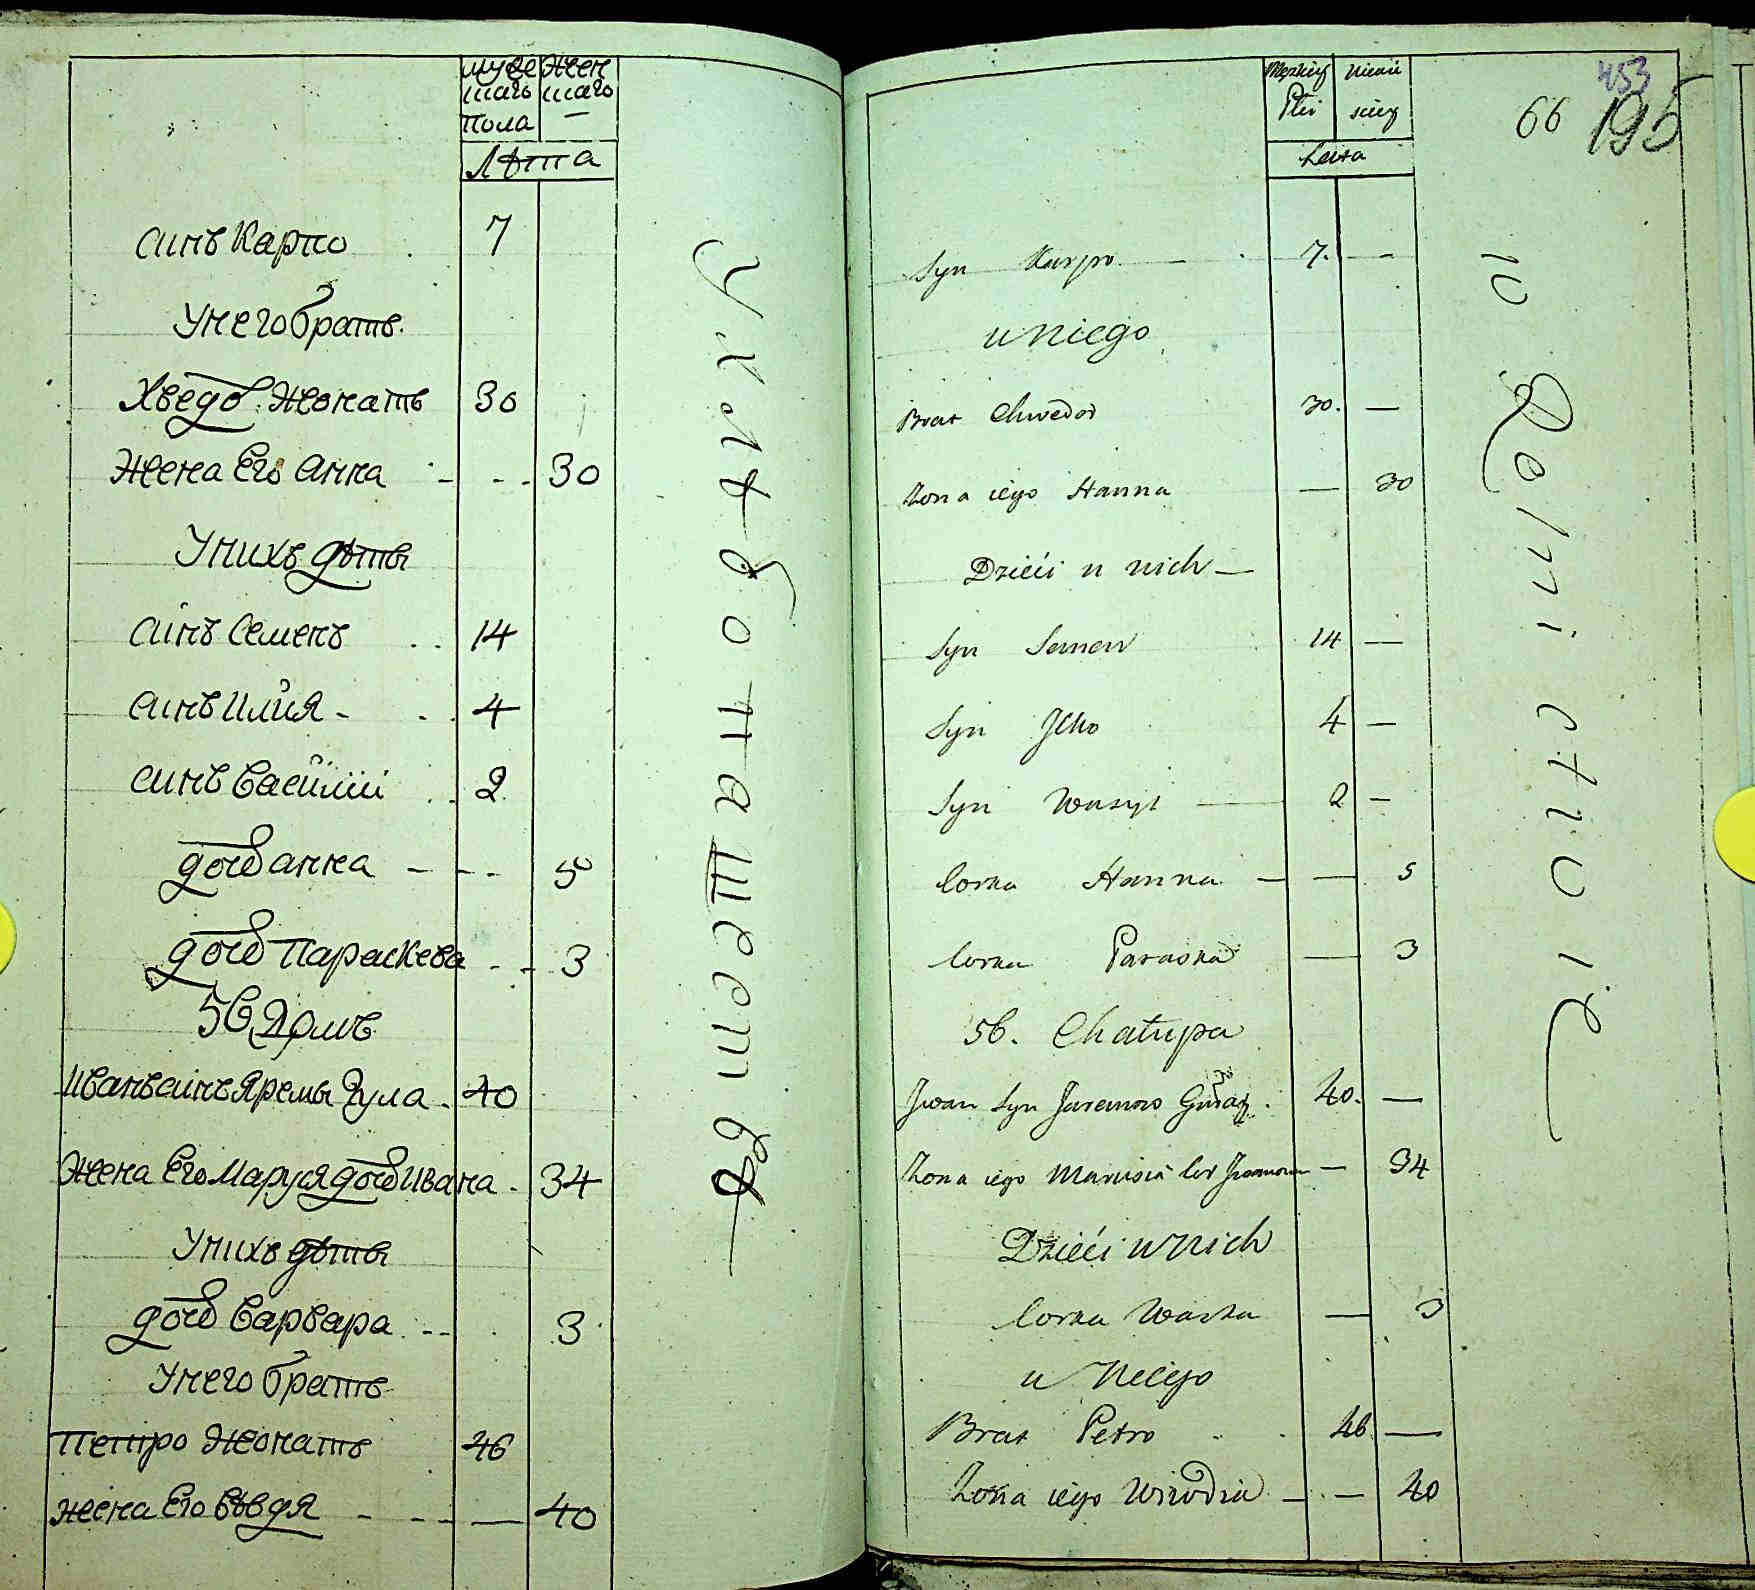 мужескаго пола
женскаго —
Лѣта
синъ Карпо 7
У него братъ
Хведоръ жонатъ 30
Жена Его Анна - - - 30
У нихъ дѣты
синъ Семенъ 14
синъ Илия - 4
синъ Василий 2
дочь Анна - - - 5
дочь Параскева - - 3
56 Домъ
Иванъ синъ Яремы Гула 40
Жена Его Маруся дочь Ивана 34
У нихъ дѣты
дочь Варвара - - 3
У него братъ
Петро Жонатъ 46
жена Его Евдя - - - — 40
Męzkiey Płci
Lata
66
453
195
Syn Karpo — 7. —
u Niego
Brat Chwedor 30. —
Żona iego Hanna — 30
Dzieci u nich —
Syn Semen 14 —
Syn Jlko 4 —
Syn Wasyl — 2 —
Corka Hanna — — 5
Corka Paraska — 3
56. Chałupa
Jwan Syn Jaremow 40. —
Żona iego Marusia Cor Jwanowa — 34
Dzieci u nich
Corka Warka — 3
u Niego
Brat Petro 46 —
Żona iego — — 40
10 Rolnictwo